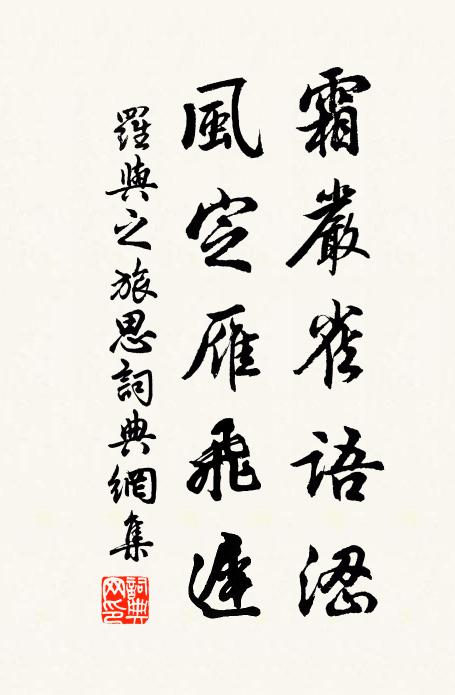 霜嚴雀語澀
風定雁飛遲
羅與之旅思詞典網集
詞典網印